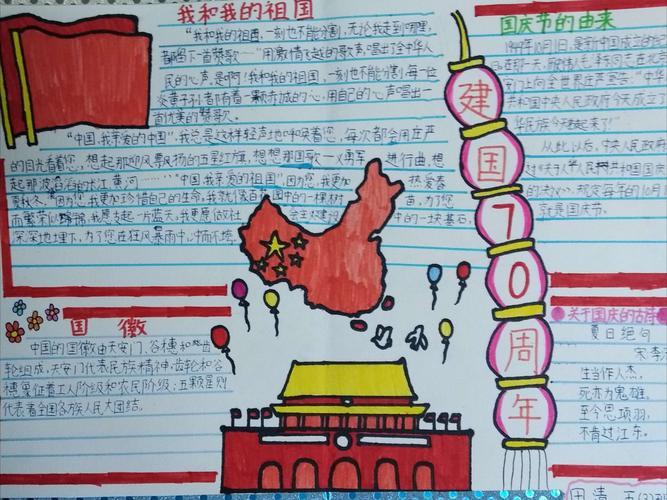 我和我的祖国
"我和我的祖国,一刻也不能分割,无论我走到哪里,
都留下一首赞歌……"用激情飞越的歌声,唱出了全中华人
民的心声。是啊!我和我的祖国,一刻也不能分割,每一位
炎黄子孙都有着一颗赤诚的心,用自己的心声唱出一
首优美的赞歌。
"中国,我亲爱的中国",我总是这样轻声地呼唤着您,每次都会用庄严
的目光看着您,想起那迎风飘扬的五星红旗,想想那国歌——义勇军 进行曲,想
起那波 的长江,黄河……"中国,我亲爱的祖国",因为您,我更加 热爱春
夏秋冬,因为您,我更加珍惜自己的生命,我就像百花园中的一棵树 苗,为了您
而繁荣 ,我愿去起一片蓝天,我更愿做社 会主义建设 中的一块基石,
深深地埋下,为了您在狂风暴雨中
国庆节的由来
1949年10月1日,是新中国成立的
在那一天, 伟人毛泽东在北
门上向全世界庄严宣告:"中华
共和国中央人民政府今天成立了
华民族今天 起来了!"
从此以后,中央人民政府
《关于 人民共和国国庆
的决 》,规定每年的10月
就是国庆节。
建国70周年
国徽
中国的国徽由天安门、谷穗和齿
轮组成,天安门代表民族精神,齿轮和谷
穗象征着工人阶级和农民阶级;五颗星则
代表着全国各族人民大团结。
关于国庆的古诗
夏日绝句
宋李
生当作人杰,
死亦为鬼雄。
至今思项羽,
不肯过江东。
田清 五(3)